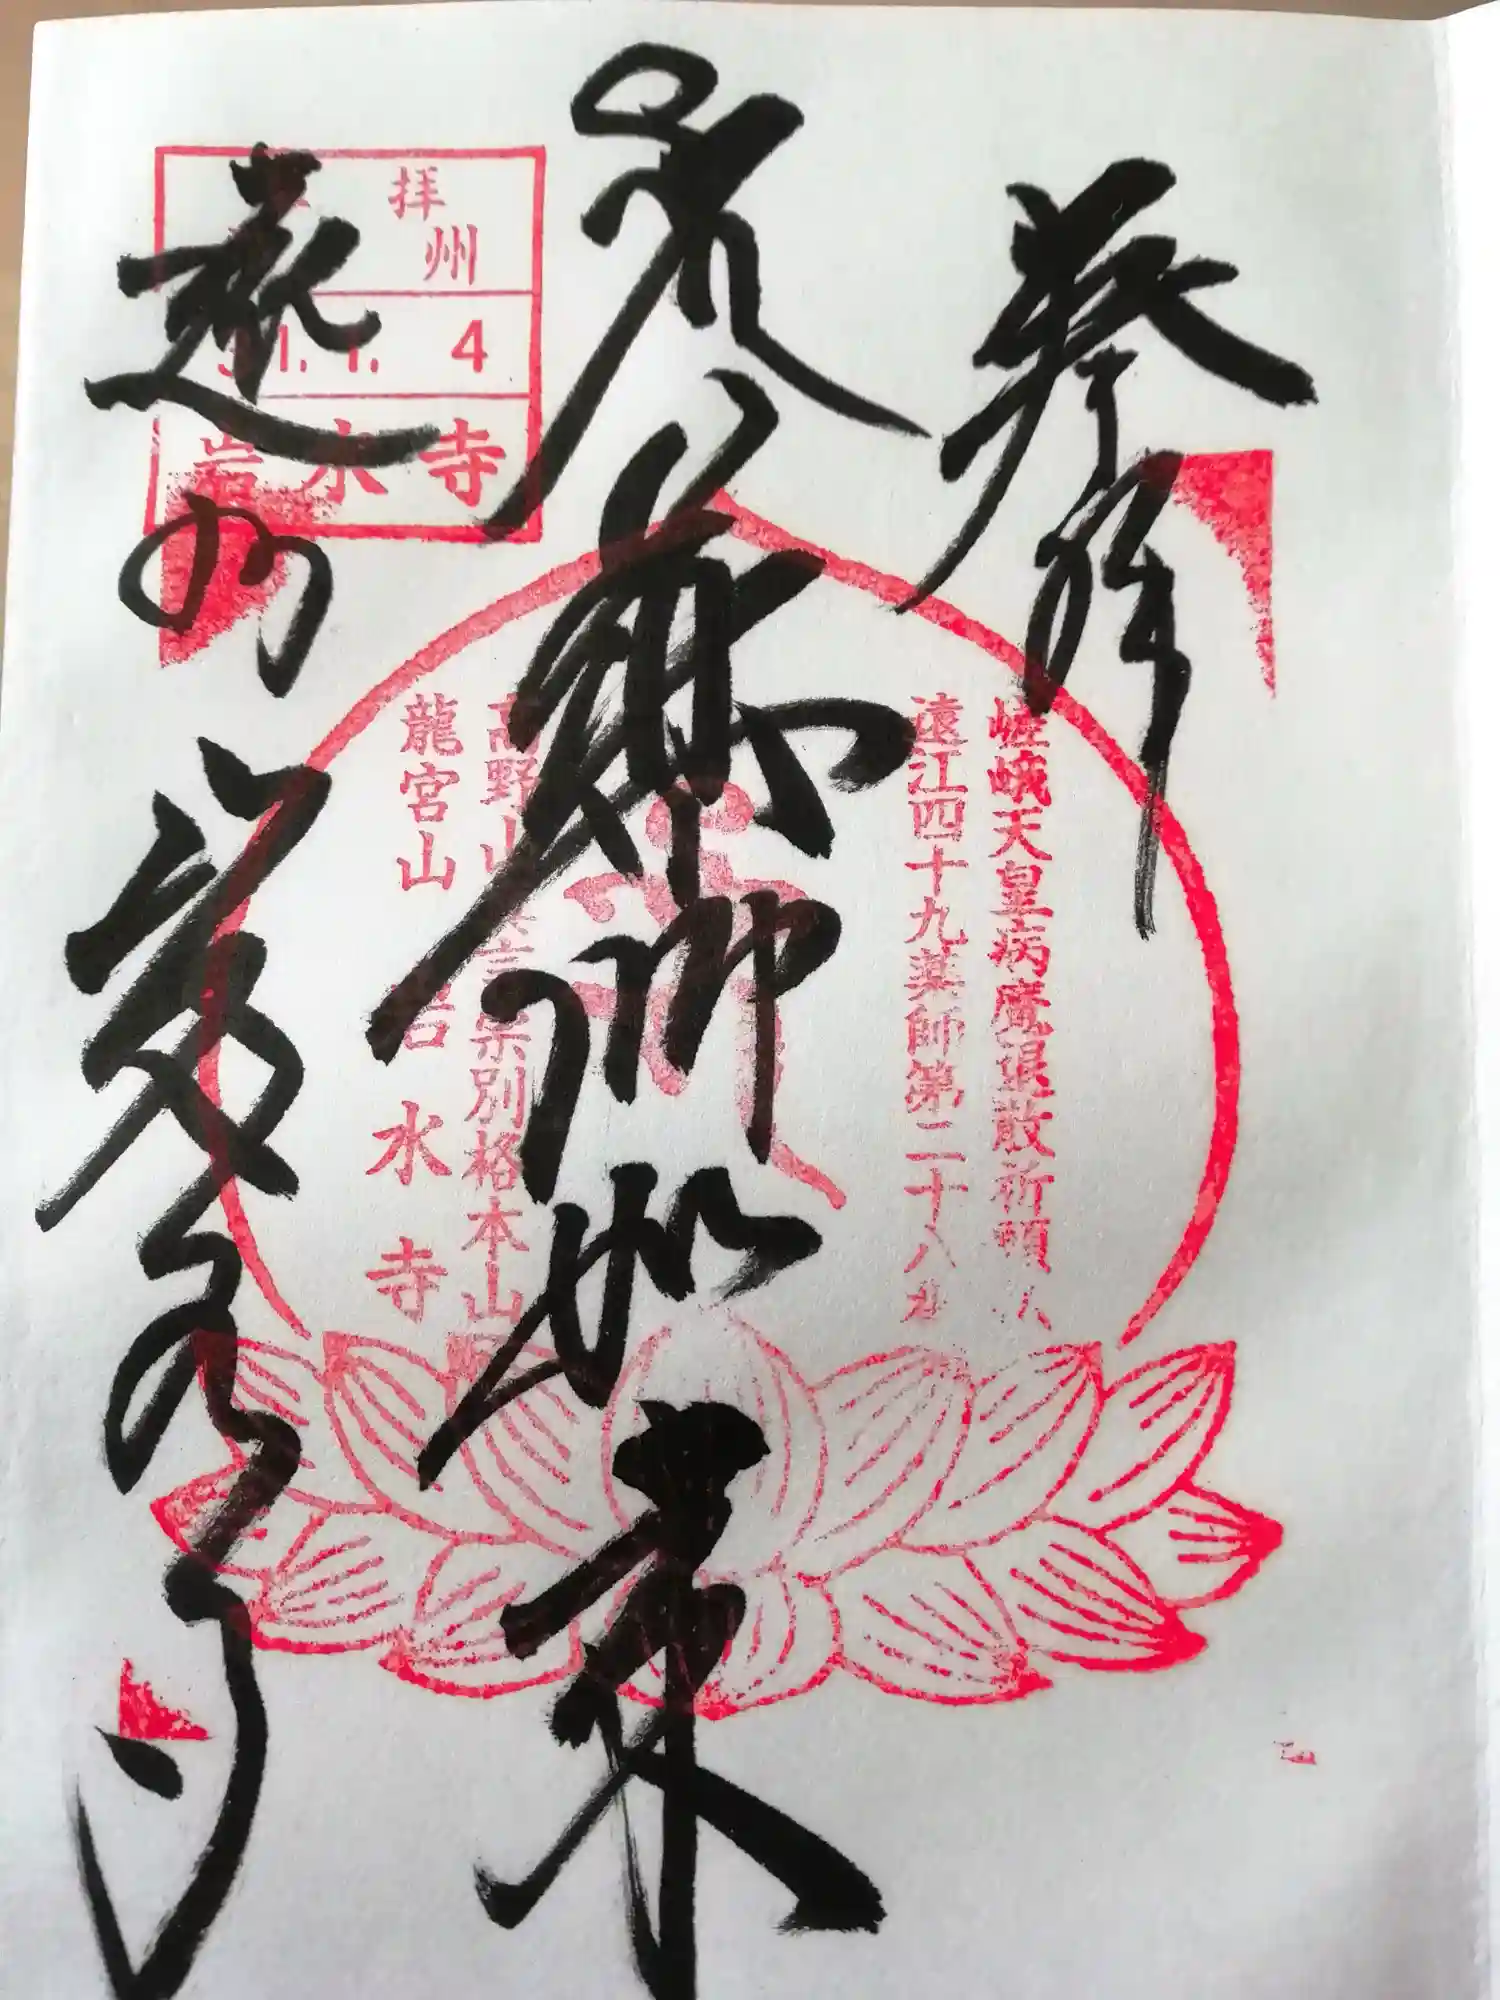 奉拝
薬師如来
遠州岩水寺
嵯峨天皇病魔退散祈願
遠江四十九薬師第二十八
高野山真言宗別格本山
龍宮山
岩水寺
拝
州
1. 1. 4
岩水寺